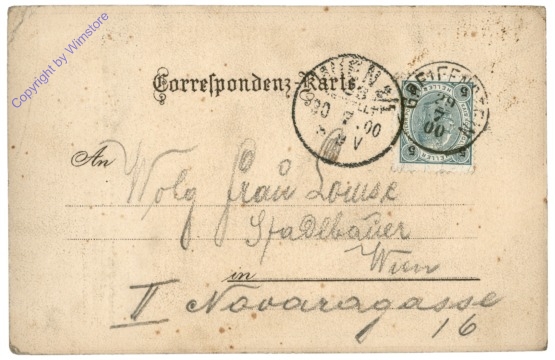 Copyright by Wimstore
Correspondenz-Karte.
WIEN
30 7 00
V
GREIFENSTEIN
29
7
00
5 5
An
Wolg frau Louise
Stadlbauer
Wien
in
II Novaragasse
16